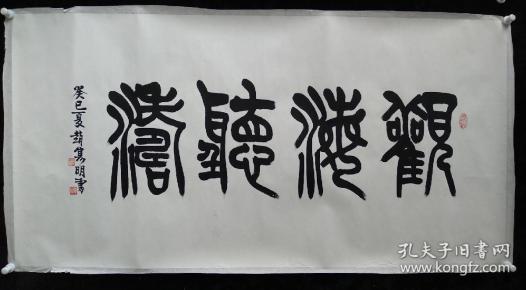 觀海聽濤
癸巳夏趙隽明書
孔夫子旧书网
www.kongfz.com